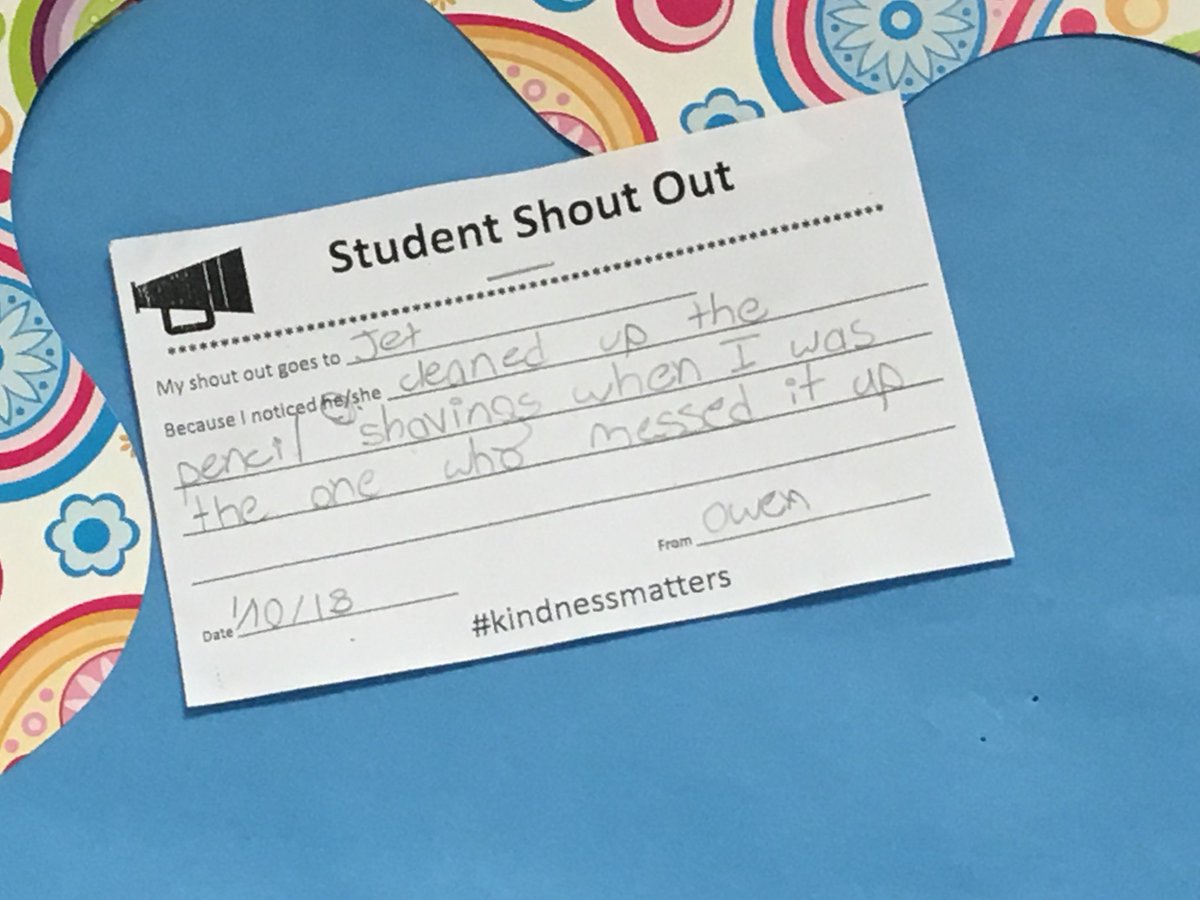 Student Shout Out
My shout out goes to Jet
Because I noticed he/she cleaned up the
pencil shavings when I was
the one who messed it up
From Owen
Date 1/10/18
#kindnessmatters